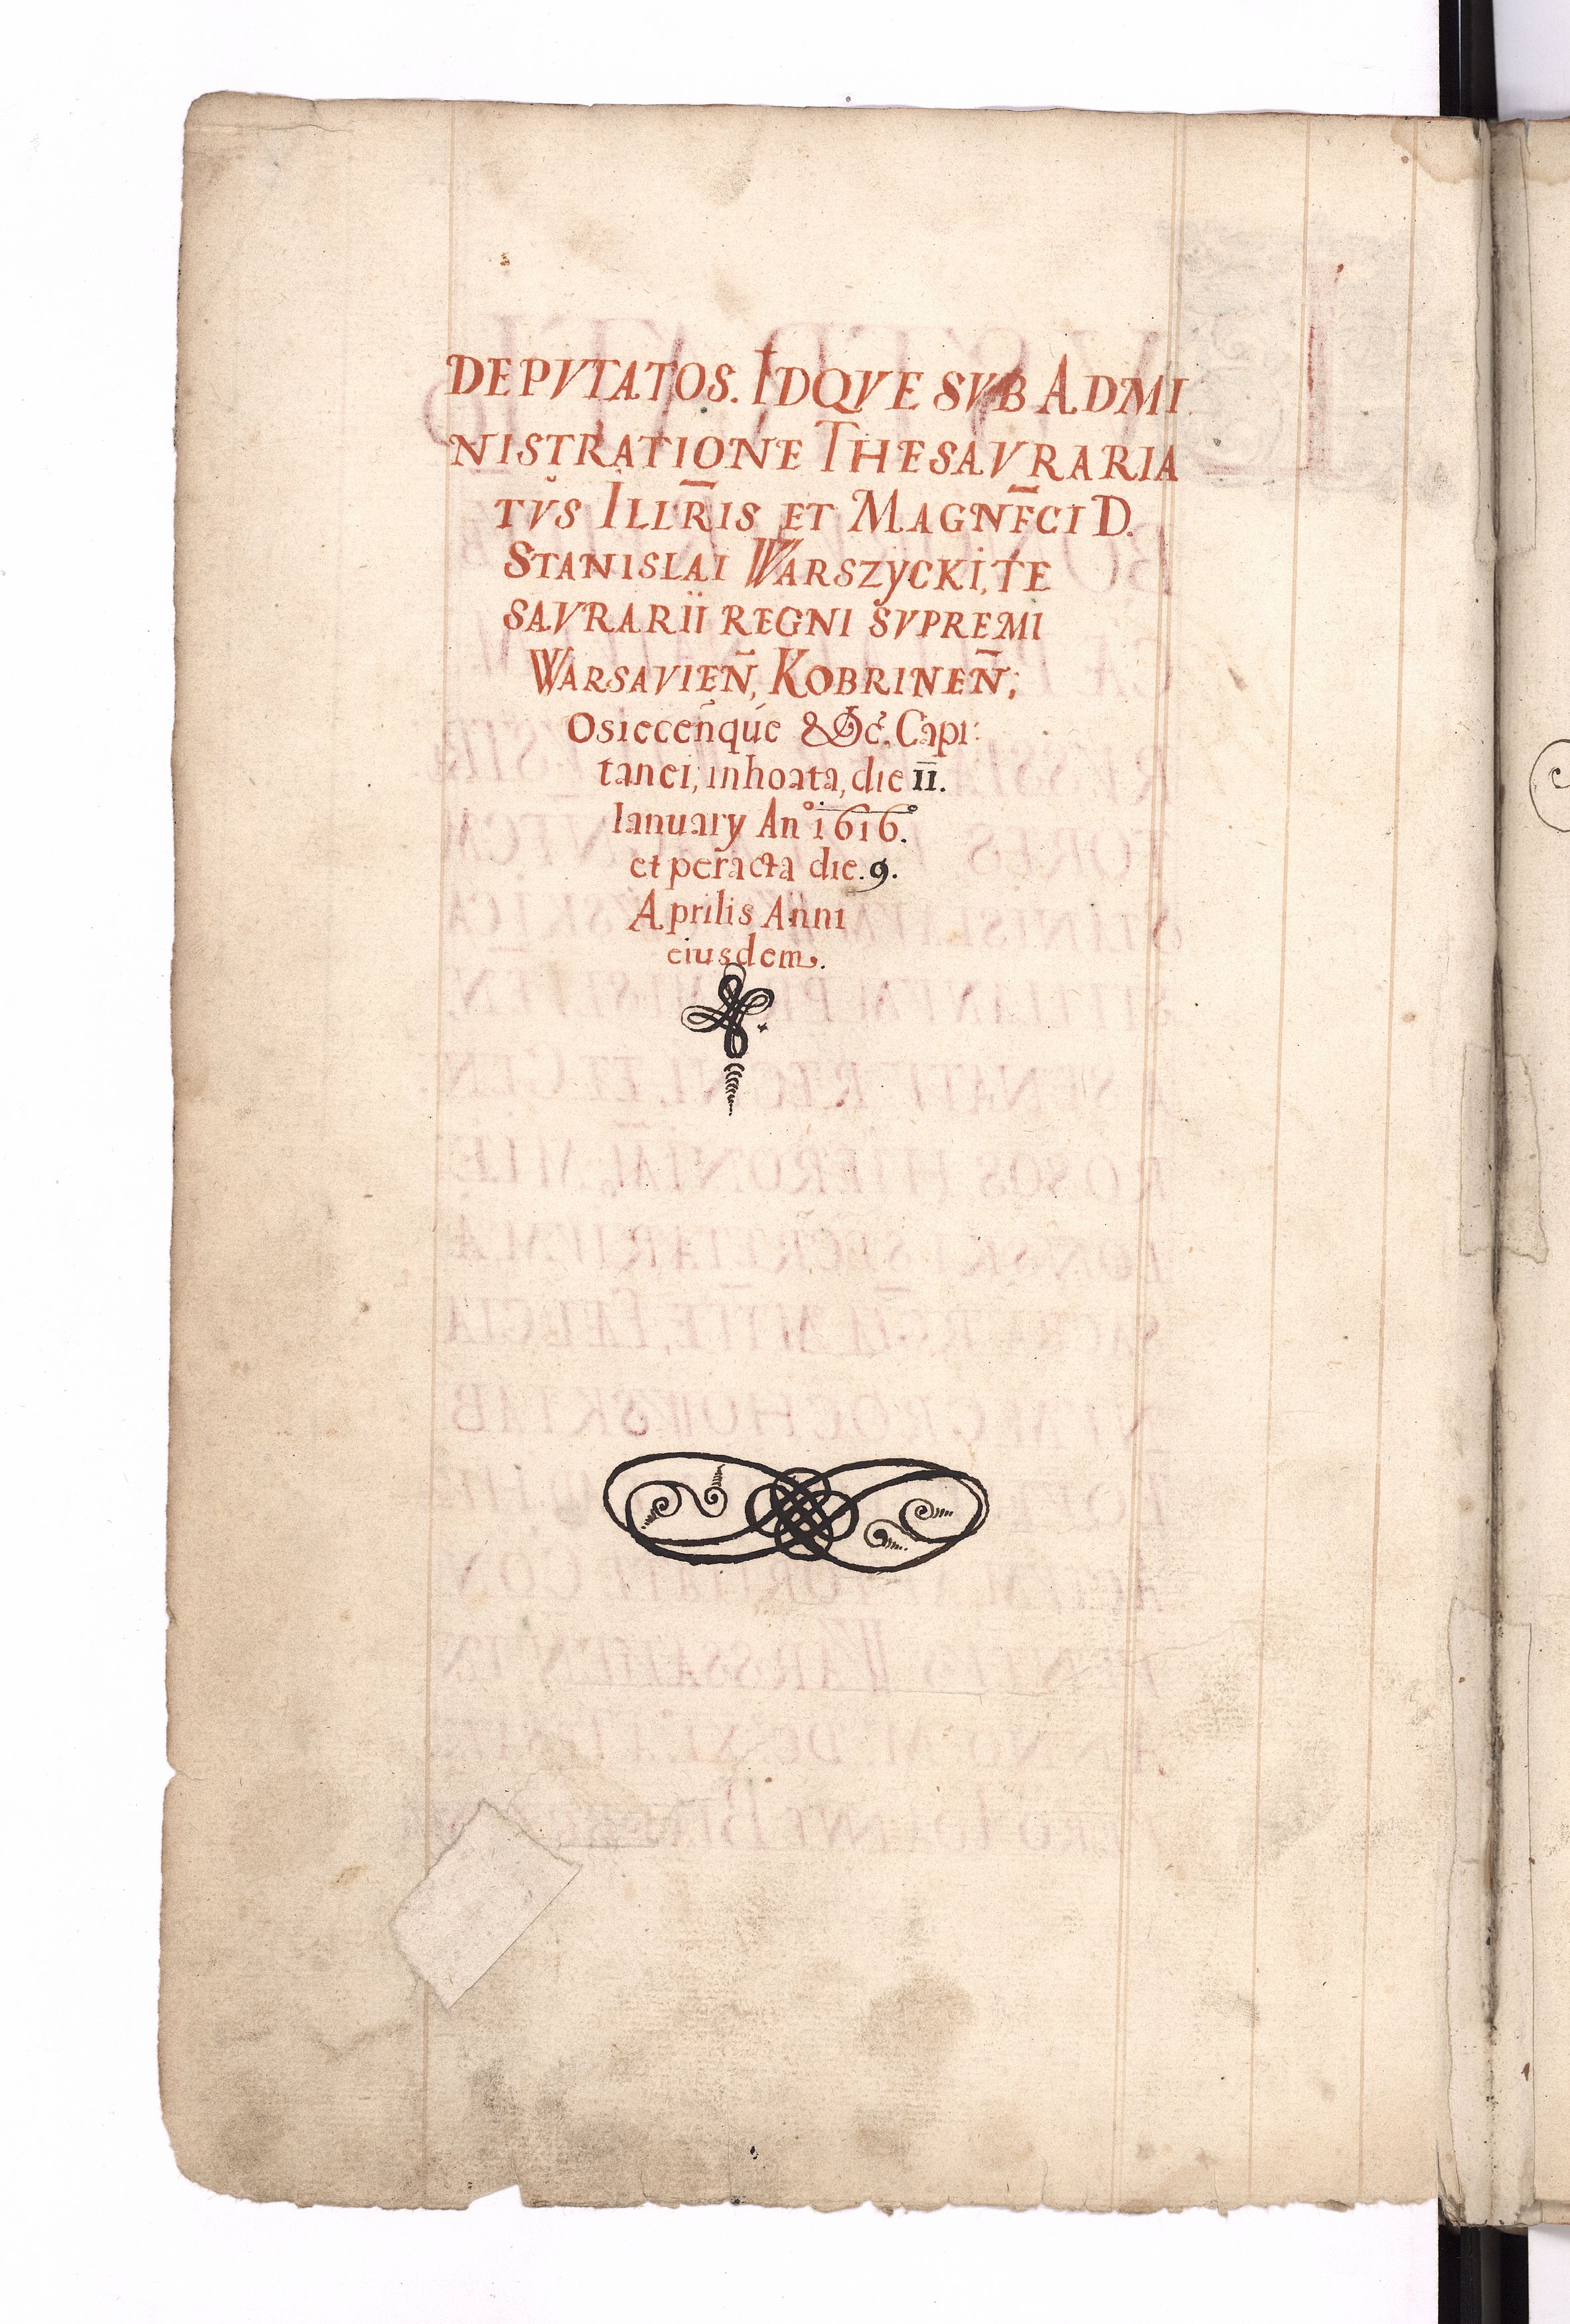 DEPVTATOS. IDQVE SVB ADMI
NISTRATIONE THESAVRARIA
TVS ILLR̄IS ET MAGNF̄CI D.
STANISLAI WARSZYCKI, TE
SAVRARII REGNI SVPREMI
WARSAVIEN̄, KOBRINEN̄;
Osiecen̄qúe &c. Capi:
tanei, inhoata, die II.
Ianuary An° 1616.
et peracta die. 9.
Aprilis Anni
eiusdem.